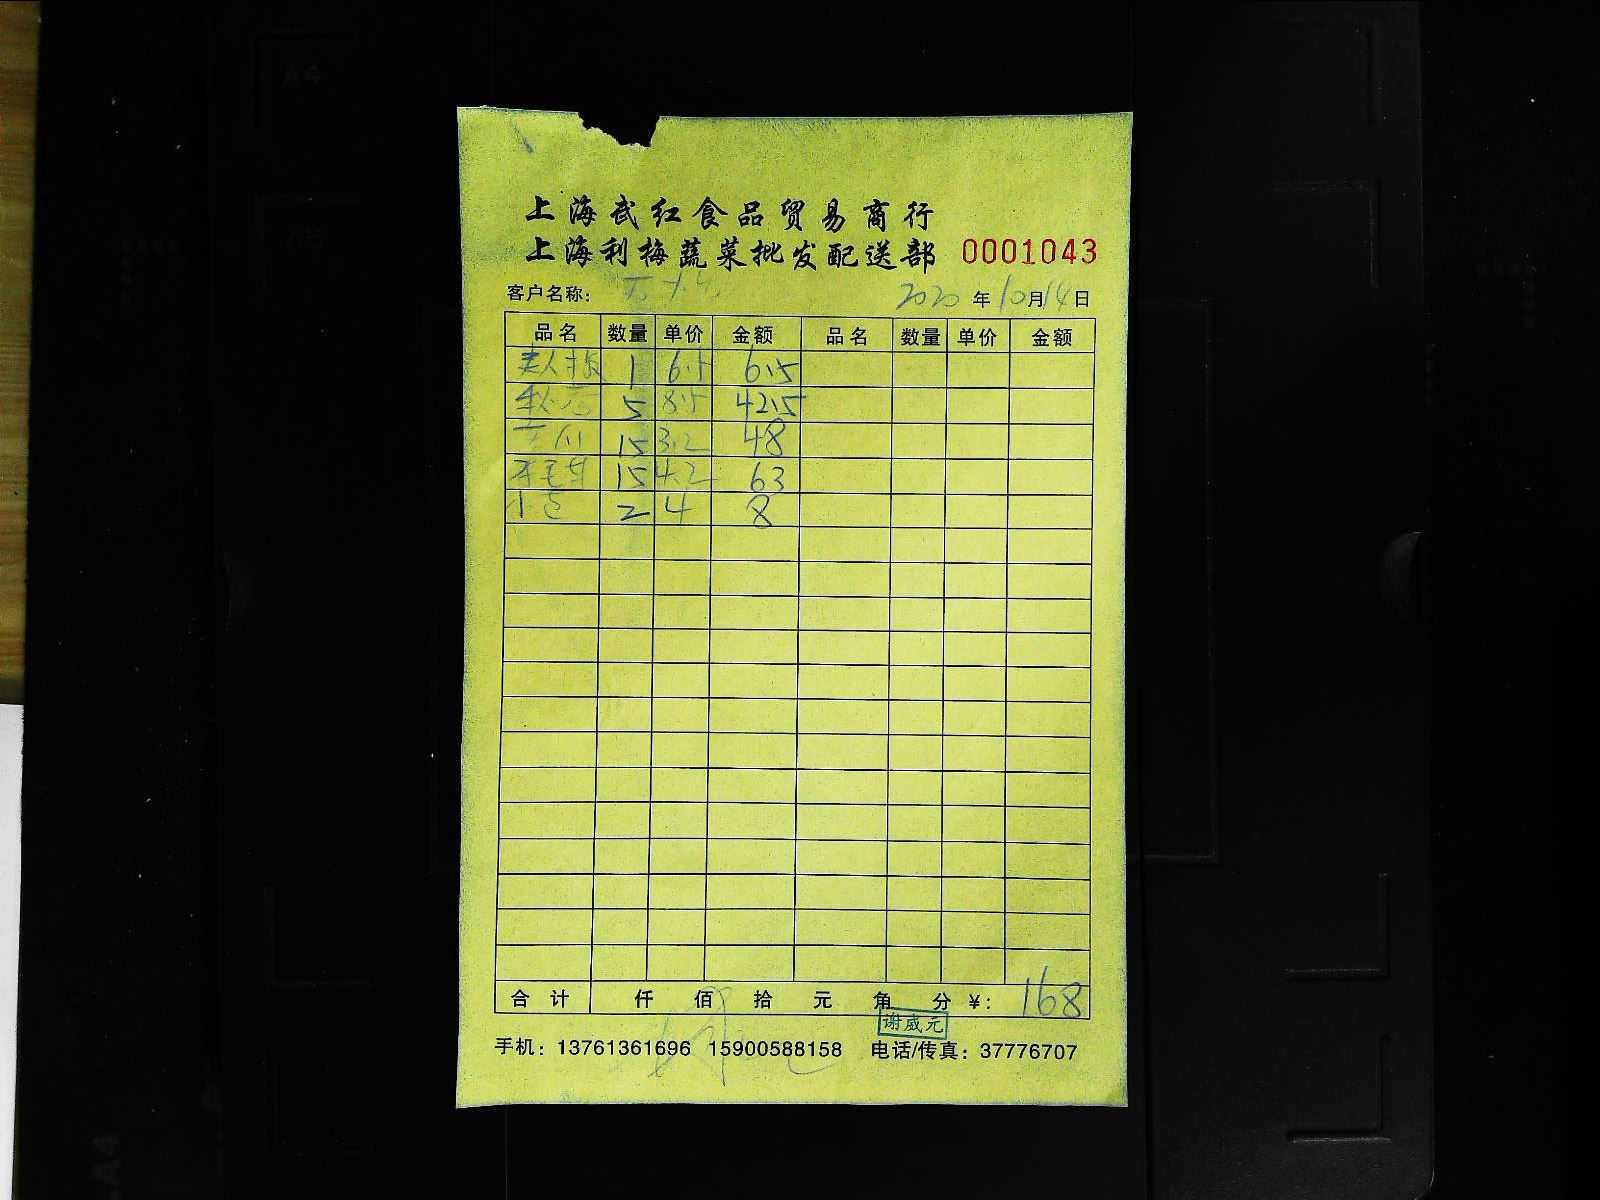 上海武红食品贸易商行
上海利梅蔬菜批发配送部 0001043
客户名称: 2020年10月14日
品名 数量 单价 金额 品名 数量 单价 金额
1 6.5 6.5
5 8.5 42.5
15 3.2 48
15 4.2 63
2 4 8
合计 仟 佰 拾 元 角 分 ¥: 168
谢威元
手机: 13761361696 15900588158 电话/传真: 37776707
A4
A5
A4